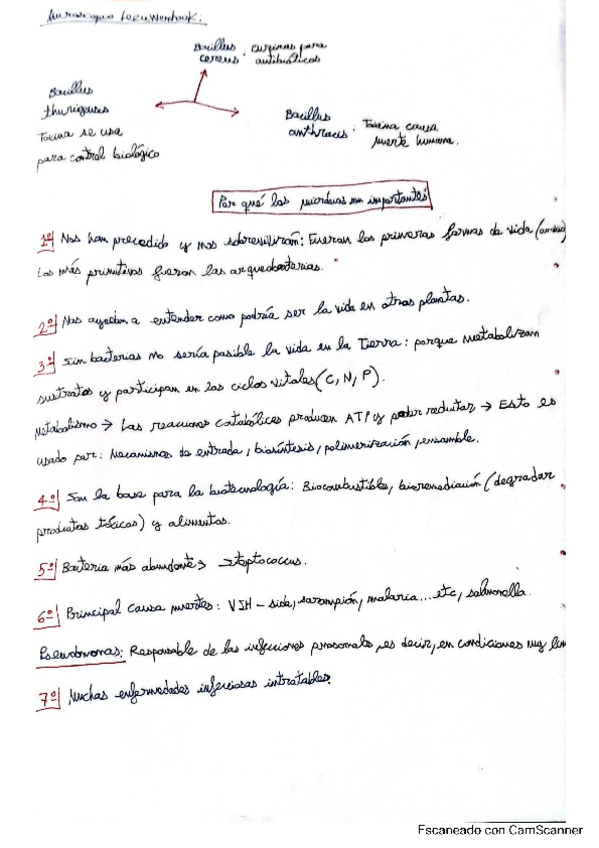 Microscopio Leeuwenhook:
Bacillus cereus : enzimas para antibióticos
Bacillus thuringensis
Toxina se usa
para control biológico
Bacillus anthracis : Toxina causa muerte humana.
Por qué los microbios son importantes
1º Nos han precedido y nos sobrevivirán: Fueron las primeras formas de vida
Los más primitivos fueron las arqueobacterias.
2º Nos ayudan a entender como podría ser la vida en otros planetas.
3º Sin bacterias no sería posible la vida en la Tierra: porque metabolizan
sustratos y participan en los ciclos vitales (C, N, P).
Metabolismo → Las reacciones catabólicas producen ATP y poder reductor → Esto es
usado por: Mecanismos de entrada, biosíntesis, polimerización, ensamble.
4º Son la base para la biotecnología: Biocombustibles, bioremediación (degradar
productos tóxicos) y alimentos.
5º Bacteria más abundante → Steptococcus.
6º Principal causa muertes: VIH - sida, sarampión, malaria...etc, salmonella.
Pseudomonas: Responsable de las infecciones es decir, en condiciones muy
7º Muchas enfermedades infecciosas intratables.
Escaneado con CamScanner